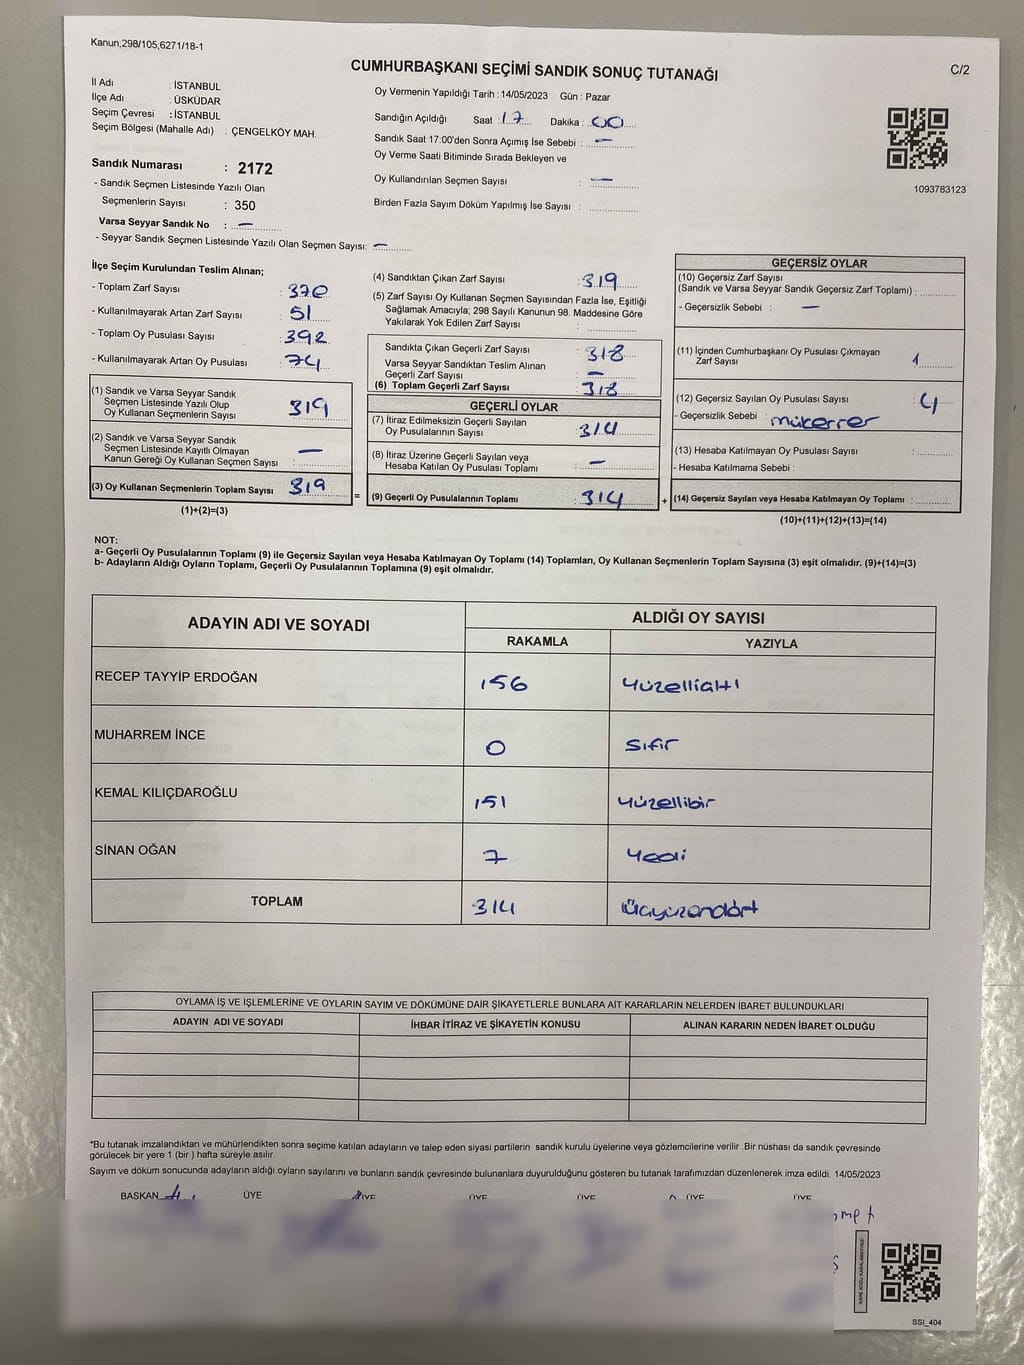 Kanun;298/105;6271/18-1
C/2
CUMHURBAŞKANI SEÇİMİ SANDIK SONUÇ TUTANAĞI
İl Adı : İSTANBUL
İlçe Adı : ÜSKÜDAR
Seçim Çevresi : İSTANBUL
Seçim Bölgesi (Mahalle Adı) : ÇENGELKÖY MAH.
Sandık Numarası : 2172
- Sandık Seçmen Listesinde Yazılı Olan
Seçmenlerin Sayısı : 350
Varsa Seyyar Sandık No : —
- Seyyar Sandık Seçmen Listesinde Yazılı Olan Seçmen Sayısı: —
Oy Vermenin Yapıldığı Tarih : 14/05/2023 Gün : Pazar
Sandığın Açıldığı Saat : 17 Dakika : 00
Sandık Saat 17:00'den Sonra Açımış İse Sebebi : —
Oy Verme Saati Bitiminde Sırada Bekleyen ve
Oy Kullandırılan Seçmen Sayısı : —
Birden Fazla Sayım Döküm Yapılmış İse Sayısı :
1093783123
İlçe Seçim Kurulundan Teslim Alınan;
- Toplam Zarf Sayısı : 370
- Kullanılmayarak Artan Zarf Sayısı : 51
- Toplam Oy Pusulası Sayısı : 392
- Kullanılmayarak Artan Oy Pusulası : 74
(1) Sandık ve Varsa Seyyar Sandık
Seçmen Listesinde Yazılı Olup
Oy Kullanan Seçmenlerin Sayısı : 319
(2) Sandık ve Varsa Seyyar Sandık
Seçmen Listesinde Kayıtlı Olmayan
Kanun Gereği Oy Kullanan Seçmen Sayısı : —
(3) Oy Kullanan Seçmenlerin Toplam Sayısı : 319
(1)+(2)=(3)
=
(4) Sandıktan Çıkan Zarf Sayısı : 319
(5) Zarf Sayısı Oy Kullanan Seçmen Sayısından Fazla İse, Eşitliği
Sağlamak Amacıyla; 298 Sayılı Kanunun 98. Maddesine Göre
Yakılarak Yok Edilen Zarf Sayısı :
Sandıkta Çıkan Geçerli Zarf Sayısı : 318
Varsa Seyyar Sandıktan Teslim Alınan
Geçerli Zarf Sayısı : —
(6) Toplam Geçerli Zarf Sayısı : 318
GEÇERLİ OYLAR
(7) İtiraz Edilmeksizin Geçerli Sayılan
Oy Pusulalarının Sayısı : 314
(8) İtiraz Üzerine Geçerli Sayılan veya
Hesaba Katılan Oy Pusulası Toplamı : —
(9) Geçerli Oy Pusulalarının Toplamı : 314
+
GEÇERSİZ OYLAR
(10) Geçersiz Zarf Sayısı
(Sandık ve Varsa Seyyar Sandık Geçersiz Zarf Toplamı) :
- Geçersizlik Sebebi : —
(11) İçinden Cumhurbaşkanı Oy Pusulası Çıkmayan
Zarf Sayısı : 1
(12) Geçersiz Sayılan Oy Pusulası Sayısı : 4
- Geçersizlik Sebebi : mükerrer
(13) Hesaba Katılmayan Oy Pusulası Sayısı :
- Hesaba Katılmama Sebebi :
(14) Geçersiz Sayılan veya Hesaba Katılmayan Oy Toplamı :
(10)+(11)+(12)+(13)=(14)
NOT:
a- Geçerli Oy Pusulalarının Toplamı (9) ile Geçersiz Sayılan veya Hesaba Katılmayan Oy Toplamı (14) Toplamları, Oy Kullanan Seçmenlerin Toplam Sayısına (3) eşit olmalıdır. (9)+(14)=(3)
b- Adayların Aldığı Oyların Toplamı, Geçerli Oy Pusulalarının Toplamına (9) eşit olmalıdır.
ADAYIN ADI VE SOYADI
ALDIĞI OY SAYISI
RAKAMLA YAZIYLA
RECEP TAYYİP ERDOĞAN 156 Yüzellialtı
MUHARREM İNCE 0 Sıfır
KEMAL KILIÇDAROĞLU 151 Yüzellibir
SİNAN OĞAN 7 Yedi
TOPLAM 314 Üçyüzondört
OYLAMA İŞ VE İŞLEMLERİNE VE OYLARIN SAYIM VE DÖKÜMÜNE DAİR ŞİKAYETLERLE BUNLARA AİT KARARLARIN NELERDEN İBARET BULUNDUKLARI
ADAYIN ADI VE SOYADI İHBAR İTİRAZ VE ŞİKAYETİN KONUSU ALINAN KARARIN NEDEN İBARET OLDUĞU
*Bu tutanak imzalandıktan ve mühürlendikten sonra seçime katılan adayların ve talep eden siyasi partilerin sandık kurulu üyelerine veya gözlemcilerine verilir. Bir nüshası da sandık çevresinde
görülecek bir yere 1 (bir ) hafta süreyle asılır.
Sayım ve döküm sonucunda adayların aldığı oyların sayılarını ve bunların sandık çevresinde bulunanlara duyurulduğunu gösteren bu tutanak tarafımızdan düzenlenerek imza edildi. 14/05/2023
BAŞKAN ÜYE ÜYE ÜYE ÜYE ÜYE ÜYE
SSI_404